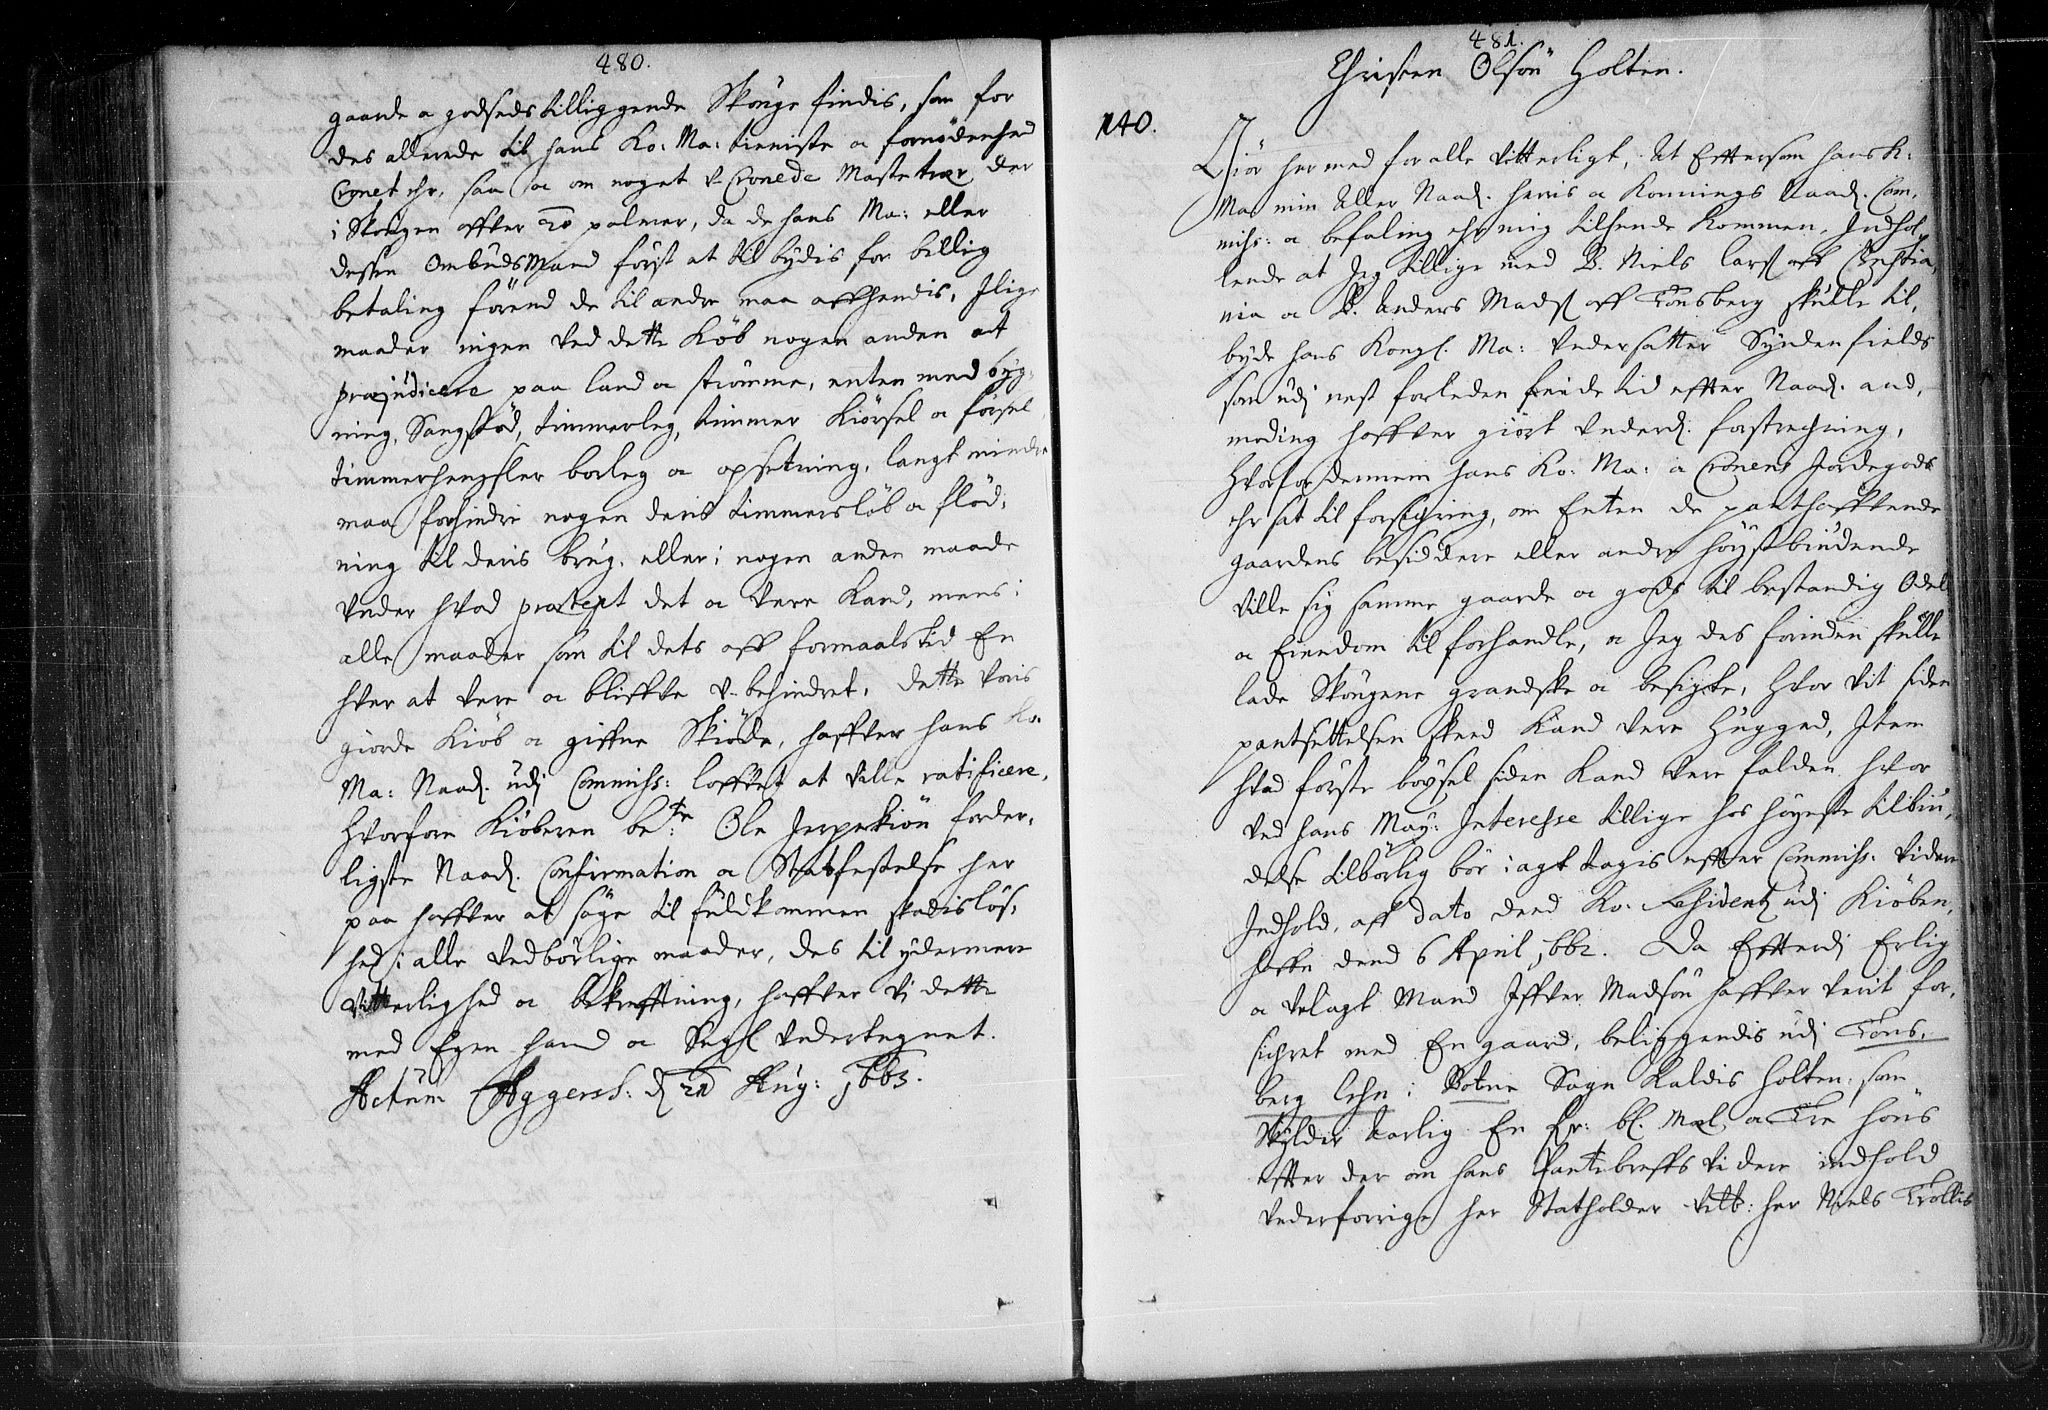 480.
gaarde a godseds tilliggende Skouge findis, som for
des allerede til hans Ko: Ma: tieniste a fornödenhed
Cronet ehr, saa a om noget v-Cronede Mastetræer der
i Skougen offver 20 palmer, da de hans Ma: eller
dessen OmbudsMand först at tilbydis for billig
betaling förend de til andre maa affhendis, Ilige
maader ingen ved dette Kiöb nogen anden at
præjudicere paa land a strömme, enten med byg,
ning, Saugstöd, timmerleg, timmer Kiörsel a försel,
timmerhengsler borleg a opsetning, langt mindre
maa forhindre nogen deris timmerslöb a flöd,
ning til deris brug, eller i nogen anden maade
under hvad prætext det a vere kand, mens i
alle maader som til dets aff formaals tid En
hver at vere a bliffve v-behindret, dette voris
giorde Kiöb a giffne Skiöde, haffver hans Ko:
Ma: Naad. udj Commiss: loffvet at ville ratificere,
Hvorfore Kiöberen be:te Ole Jespersön forder,
ligste Naad. Confirmation a Stadfestelse her
paa haffver at söge til fuldkommen skadislös,
hed i alle vedbörlige maader, des til ydermere
Vitterlighed a bekrefftning, haffver Vi dette
med Egen haand a Segl undertegnet.
Actum Aggersh: d 21 Aug: 1663.
481.
Christen Olsön Holten.
140.
Giör her med for alle vitterligt, At Efftersom hans K:
Mas min Aller Naad. herris a Konnings Naad. Com,
miss: a befaling ehr mig tilhende Kommen, Indhol,
lende at Jeg tillige med B. Niels Lars: aff Christia,
nia a B. Anders Mads: aff Tönsberg skulle til,
byde hans Kongl. Ma: Undersatter Synden fields
som udj nest forleden feide tid effter Naad. and,
moding haffver giört underd. forstrechning,
Hvorfor dennem hans Ko: Ma: a Cronens Jordegods
ehr sat til forsichring, om Enten de panthaffvende
gaardens besiddere eller andre höystbiudende
ville sig samme gaarde a gods til bestandig Odel
a Eiendom til forhandle, a Jeg des forinden skulle
lade Skougene grandske a besigte, Hvor vit siden
pantsettelsen skeed kand vere Hugged, Item
hvad förste böysel siden kand vere falden hvor
ved hans May: Interesse tillige hos höyeste tilbiu,
delse tilbörlig bör i agt tagis effter Commiss: videre
Indhold, aff dato deed Ko: Residentz udj Kiöben,
haffn dend 6 April 1662. Da Effterdj Erlig
a velagt Mand Iffver Madsön haffver verit for,
sichret med En gaard, beliggendis udj Töns,
berg Lehn i Botne Sogn kaldis Holten, som
Skylder aarlig En Fr: bl. Mel a Tre höns
effter der om hans Pantebreffs videre indhold
under forrige her Statholder Velb: her Niels Trollis